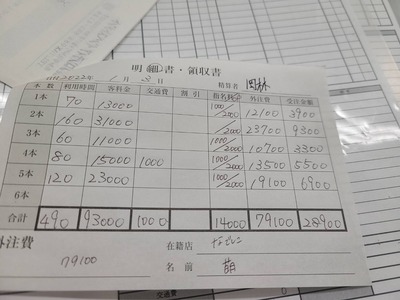 明細書・領収書
2022年 1 3日 精算者 岡林
本数 利用時間 客料金 交通費 割引 指名料金 外注費 受注金額
1本 70 13000 1000/2000 12100 3900
2本 160 31000 1000/2000 23700 9300
3本 60 11000 1000/2000 10700 3300
4本 80 15000 1000 1000/2000 13500 5500
5本 120 23000 1000/2000 19100 6900
6本
合計 490 93000 1000 14000 79100 28900
外注費 在籍店 なでしこ
79100 名前 萌
交通費